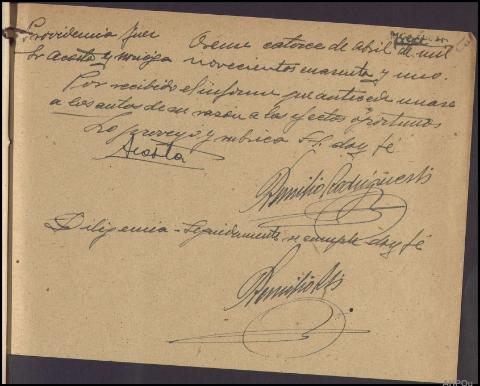 Providencia Juez
Sr Acosta y
Orense catorce de abril de mil
novecientos cuarenta y uno.
Por recibido el informe que antecede unase
a los autos de su razón a los efectos oportunos
Lo proveyó y rubrica S.S. doy fé
Acosta
Diligencia - Seguidamente se cumple doy fé
AHPOu